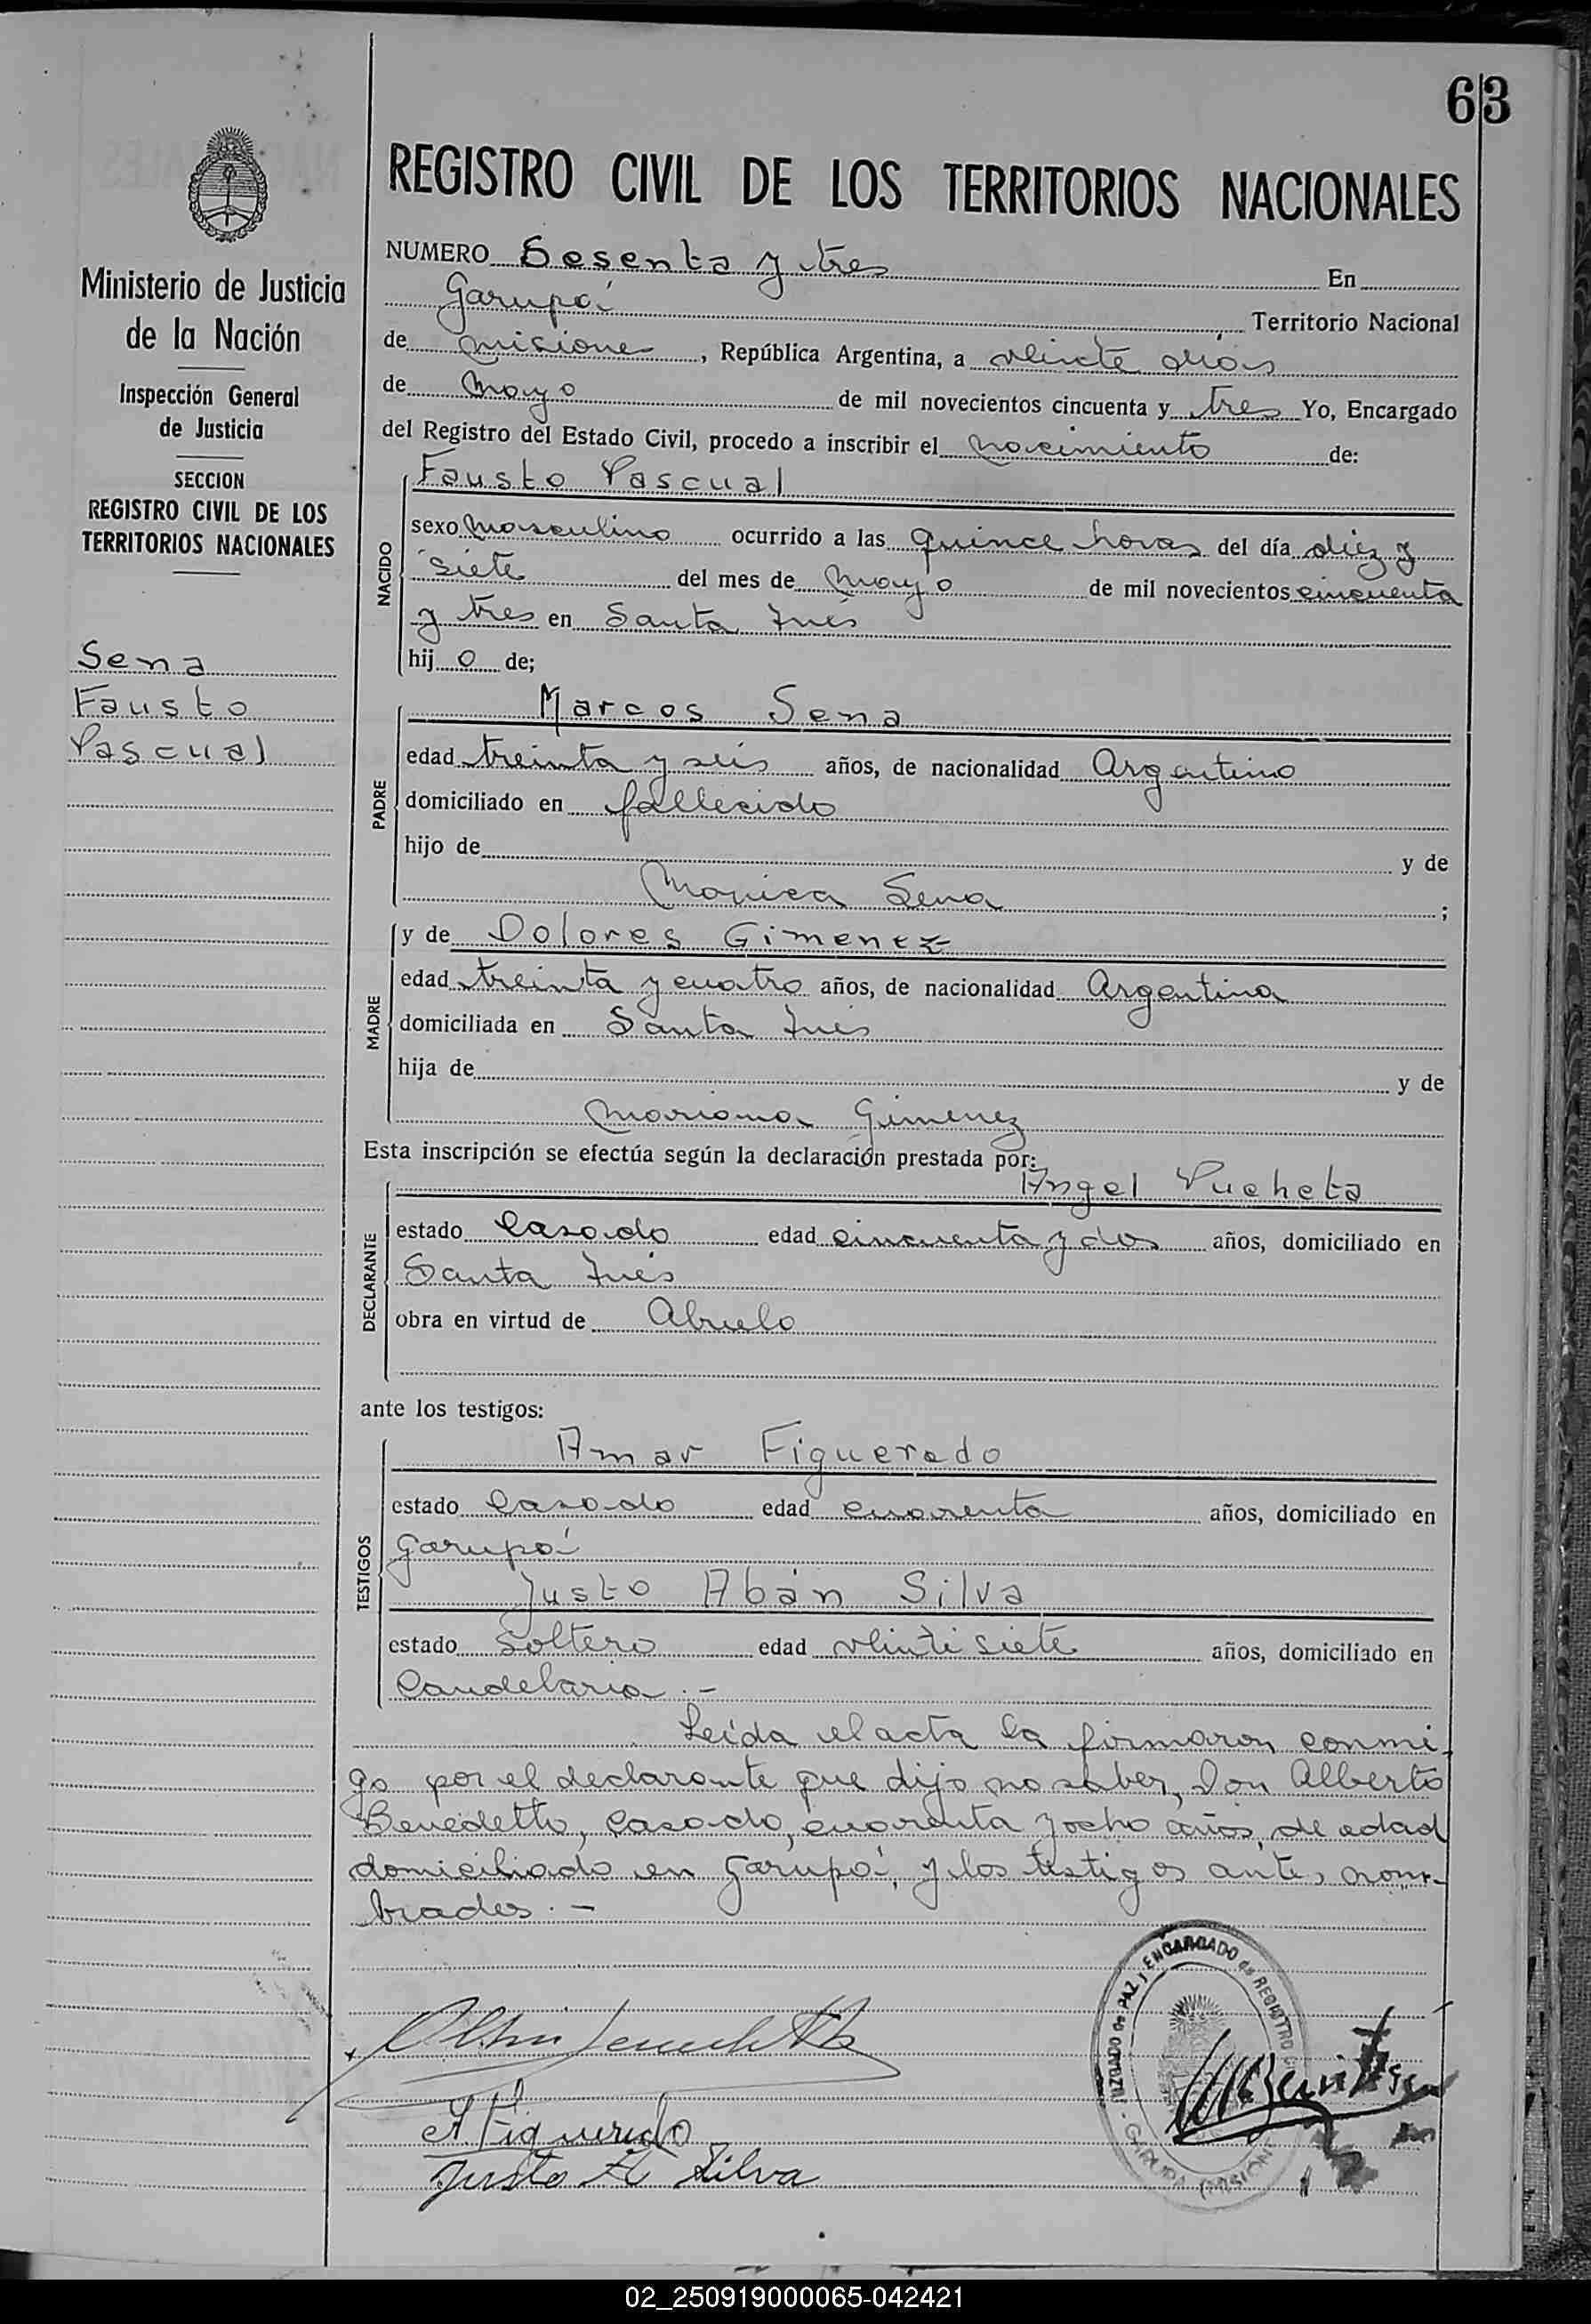 63
REGISTRO CIVIL DE LOS TERRITORIOS NACIONALES
Ministerio de Justicia
de la Nación
Inspección General
de Justicia
SECCION
REGISTRO CIVIL DE LOS
TERRITORIOS NACIONALES
Sena
Fausto
Pascual
NUMERO Sesenta y tres En
Garupá Territorio Nacional
de Misiones, República Argentina, a veinte días
de Mayo de mil novecientos cincuenta y tres Yo, Encargado
del Registro del Estado Civil, procedo a inscribir el nacimiento de:
NACIDO
Fausto Pascual
sexo Masculino ocurrido a las quince horas del día diez y
siete del mes de Mayo de mil novecientos cincuenta
y tres en Santa Inés
hijo de;
PADRE
Marcos Sena
edad treinta y seis años, de nacionalidad Argentino
domiciliado en fallecido
hijo de y de
Monica Sena ;
MADRE
y de Dolores Gimenez
edad treinta y cuatro años, de nacionalidad Argentina
domiciliada en Santa Inés
hija de y de
Mariana Gimenez
Esta inscripción se efectúa según la declaración prestada por:
DECLARANTE
Angel Pucheta
estado Casado edad cincuenta y dos años, domiciliado en
Santa Inés
obra en virtud de Abuelo
ante los testigos:
TESTIGOS
Amar Figueredo
estado Casado edad cuarenta años, domiciliado en
Garupá
Justo Abán Silva
estado Soltero edad veintisiete años, domiciliado en
Candelaria.-
Leída el acta la firmaron conmi-
go por el declarante que dijo no saber, Don Alberto
Benedetto, casado, cuarenta y ocho años, de edad
domiciliado en Garupá, y los testigos antes nom-
brados.-
A Figueredo
Justo A Silva
JUZGADO de PAZ y ENCARGADO de REGISTRO
GARUPA (MISIONES
02_250919000065-042421